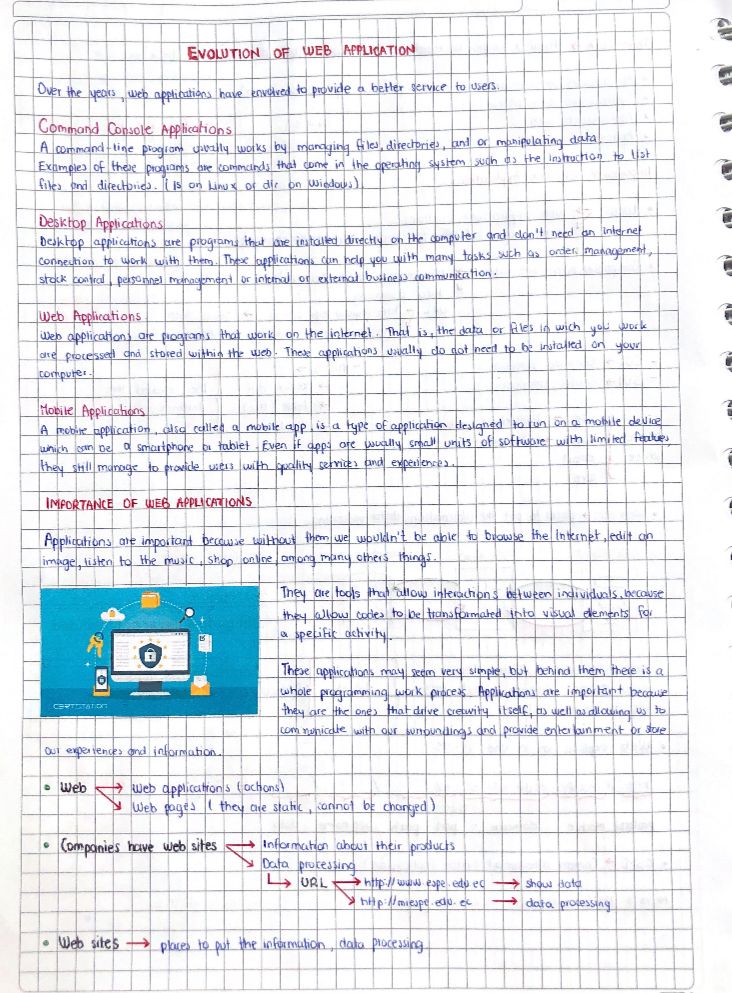 EVOLUTION OF WEB APPLICATION
Over the years, web applications have envolved to provide a better service to users.
Command Console Applications
A command-line program usually works by managing files, directories, and or manipulating data.
Examples of these programs are commands that come in the operating system such as the instruction to list
files and directories. (ls on Linux or dir on Windows).
Desktop Applications
Desktop applications are programs that are installed directly on the computer and don't need an internet
connection to work with them. These applications can help you with many tasks such as order management,
stock control, personnel management or internal or external business communication.
Web Applications
Web applications are programs that work on the internet. That is, the data or files in wich you work
are processed and stored within the web. These applications usually do not need to be installed on your
computer.
Mobile Applications
A mobile application, also called a mobile app, is a type of application designed to run on a mobile device
which can be a smartphone or tablet. Even if apps are usually small units of software with limited features,
they still manage to provide users with quality services and experiences.
IMPORTANCE OF WEB APPLICATIONS
Applications are important because without them we wouldn't be able to browse the Internet, edit an
image, listen to the music, shop online, among many others things.
They are tools that allow interactions between individuals, because
they allow codes to be transformated into visual elements for
a specific activity.
These applications may seem very simple, but behind them there is a
whole programming work process. Applications are important because
they are the ones that drive creavity itself, as well as allowing us to
communicate with our surroundings and provide entertainment or store
our experiences and information.
CERTSTATION
• Web → Web applications (actions)
→ Web pages (they are static, cannot be changed)
• Companies have web sites → Information about their products
→ Data processing
→ URL → http://www.espe.edu.ec → show data
→ http://miespe.edu.ec → data processing
• Web sites → places to put the information, data processing